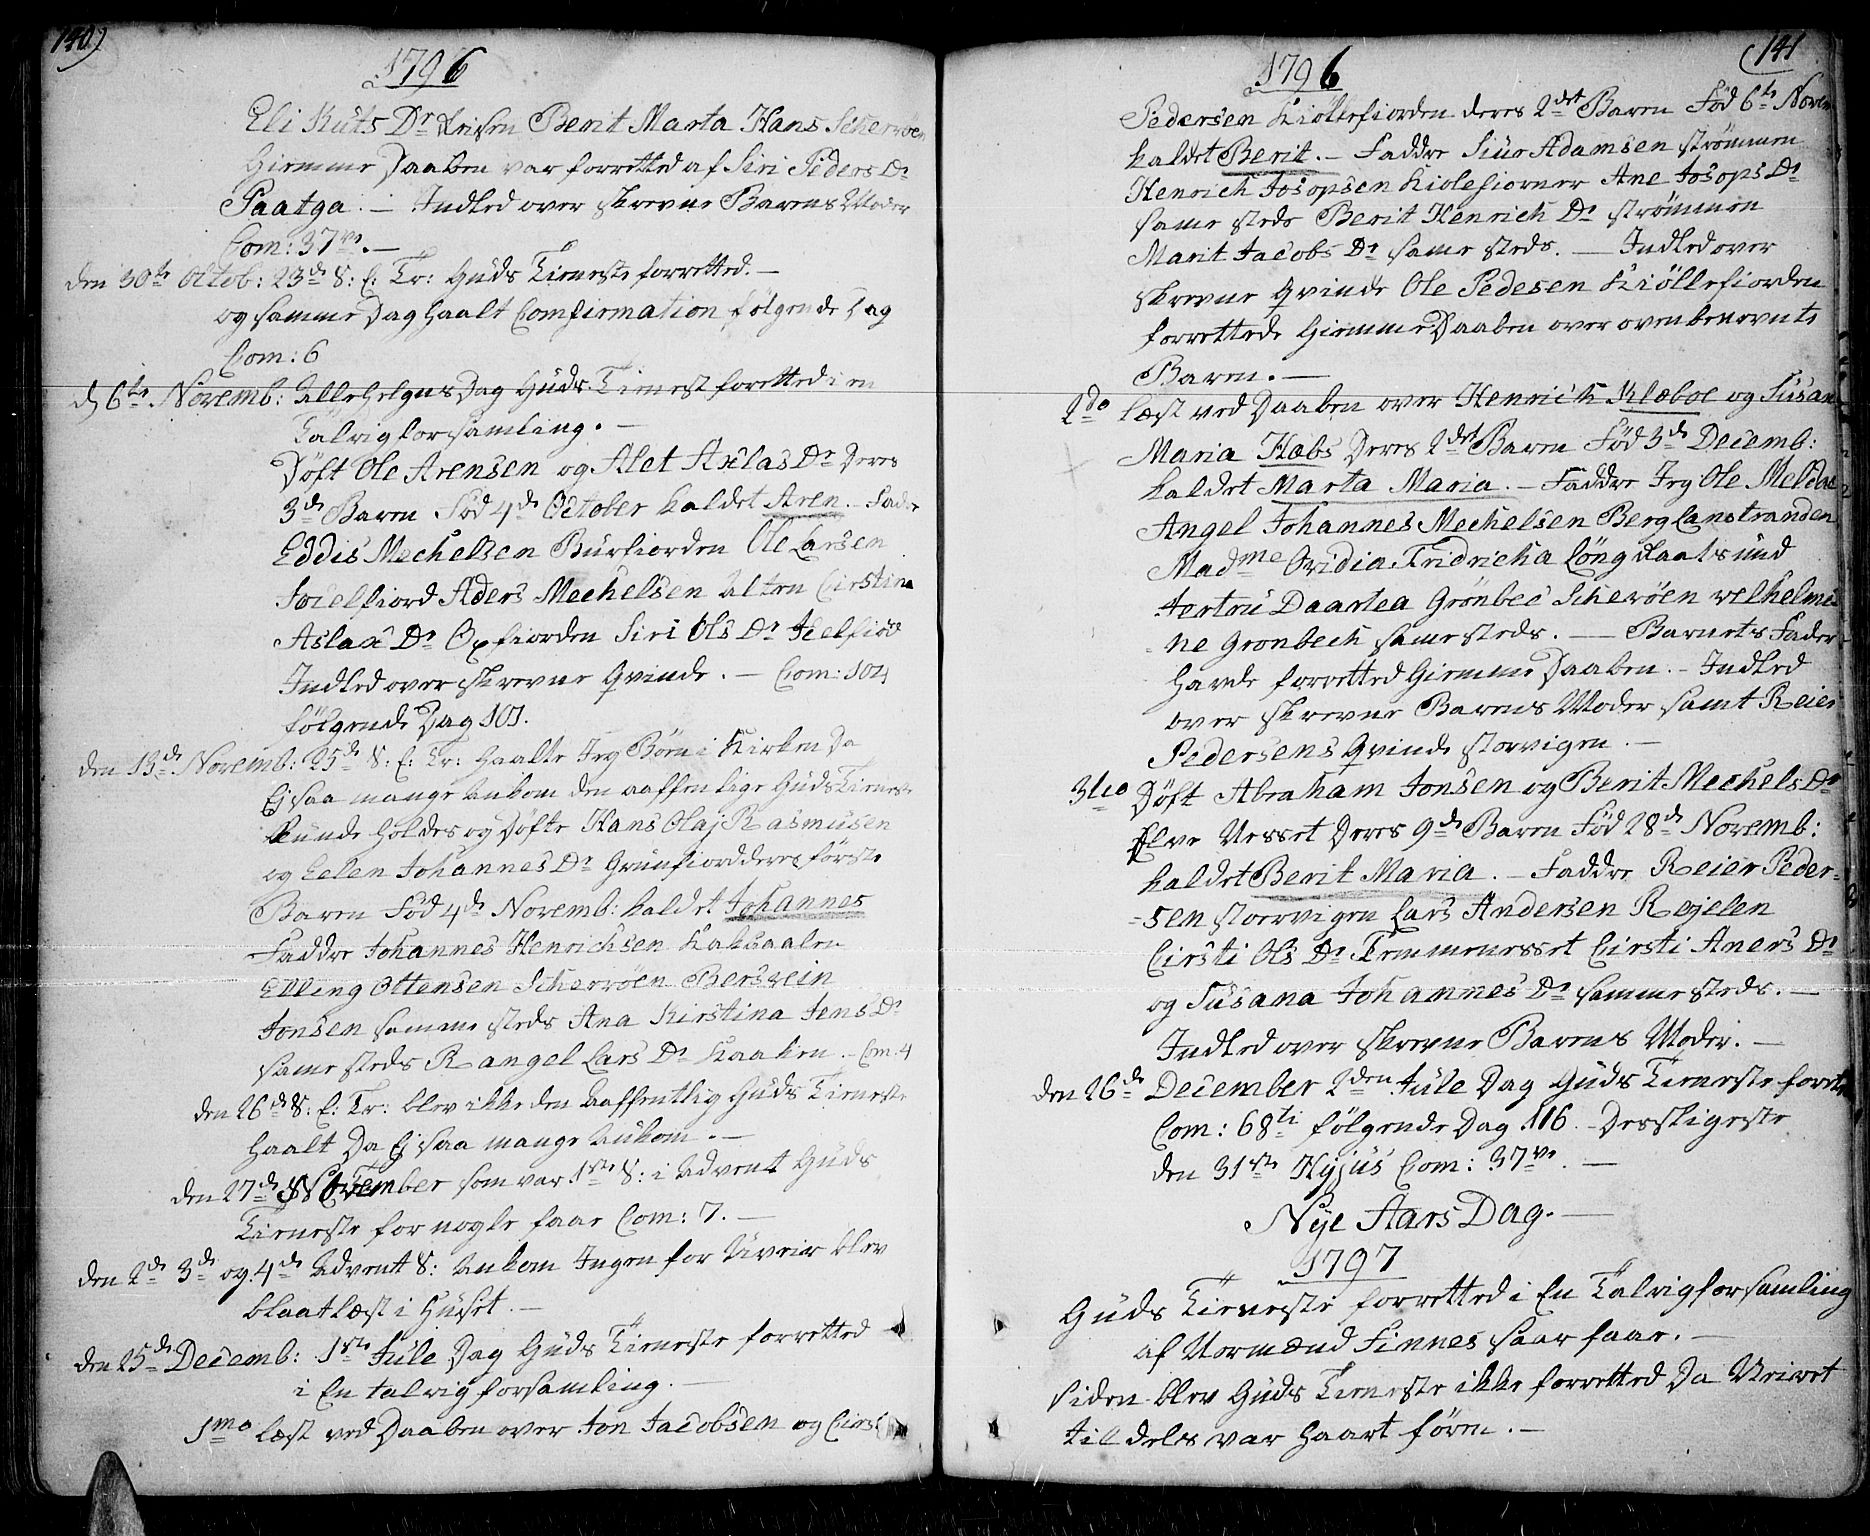 140)
1796
Eli Kuts Dr Berit Marta Hans Scherröen
Giemme Daaben var forretted af Siri Peders Dr
Paatga. — Indled over skrevne Barens Moder
Com: 37ve. —
den 30te Octob: 23de S: E: Tr: Guds Tieneste forretted. —
og samme Dag haalt Comfirmation følgende Dag
Com: 6
d 6te Novemb: Allehelgns Dag Guds Tienest foretted i en
talrig forsamling. —
Døft Ole Arensen og Alet Axlas Dr Deres
3de Baren Fød 4de October kaldet Aren. — Fadr
Eddis Mechelsen Burfiorden Ole Larsen
Joc elfiord Aders Mechelsen Alten Cirstina
Aslax Dr Oxfiorden Siri Ols Dr
Indled over skrevne Qvinde. — Com: 104
følgende Dag 101.
den 13de Novemb: 25de S: E: Tr: haalte Jeg Bøn i Kirken Da
Ej saa mange Ankom den aaffenlige Guds Tieneste
kunde holdes og Døfte Hans Olaj Rasmusen
og Eelen Johannes Dr Grunfiord deres første
Baren Fød 4de Novemb: kaldet Johannes
Faddre Johannes Henrichsen Kaksaalen
Elling Ottensen Scherröen Bersvein
Jonsen samme steds Ana Kirstina Jens Dr
same steds Rangel Lars Dr Kaaken. — Com: 4
den 26de S: E: Tr: blev ikke den Aaffentlig Guds Tieneste
haalt Da Ej saa mange Ankom. —
den 27de November som var 1ste S: i Advent Guds
Tieneste for nogle faae Com: 7. —
den 2de 3de og 4de Advent S: Ankom Ingen for Uveir blev
blaat læst i Huset. —
den 25de Decemb: 1ste Jule Dag Guds Tieneste forretted
i En talrig forsamling. —
1mo læst ved Daaben over Jon Jacobsen og
(141
1796
Pedersen Kiöllefiorden deres 2det Baren Fød 6te Novem
kaldet Berit. — Faddre Siur Adamsen strømmen
Henrich Josopsen Kiolefiorner Ane Josops Dr
same steds Berit Henrich Dr strømmen
Marit Jacobs Dr same steds. — Indled over
skrevne Qvinde Ole Pedesen Kiöllefiorden
forrettede Giemme Daaben over ovenbenevnte
Baren. —
2do læst ved Daaben over Henrich Klæboe og Susan
Maria Hæbs Deres 2det Baren Fød 3de Decemb:
kaldet Marta Maria. — Faddre Jeg Ole Meldal
Angel Johannes Mechelsen Berg Lanstranden
Madme Ovidia Fridricha Löng Kaalsund
Jertru Daartea Grönbec Scherröen velhelmi
= ne Gronbech same steds. — Barnets Fader
havde forretted Giemme Daaben. — Indled
over skrevne Barens Moder samt Reier
Pedersens Qvinde storvigen. —
3tio Døft Abraham Jonsen og Berit Mechels Dr
Elve Nesset Deres 9de Baren Fød 28de Novemb:
kaldet Berit Maria. — Faddre Reier Peder=
= sen storvigen Lars Andersen Rejelen
Cirsti Ols Dr Temmernesset Cirsti Aners Dr
og Susana Johannes Dr samme steds. —
Indled over skrevne Barens Moder. —
den 26de December 2den Jule Dag Guds Tieneste foret
Com: 68ti følgende Dag 116. — Desligeste
den 31ste Hujus Com: 37ve. —
Nye Aars Dag. —
1797
Guds Tieneste forretted i En Talrig forsamling
af Normænd Finnes saar faae. —
siden blev Guds Tieneste ikke forretted Da Veiret
til dels var haart føren. —